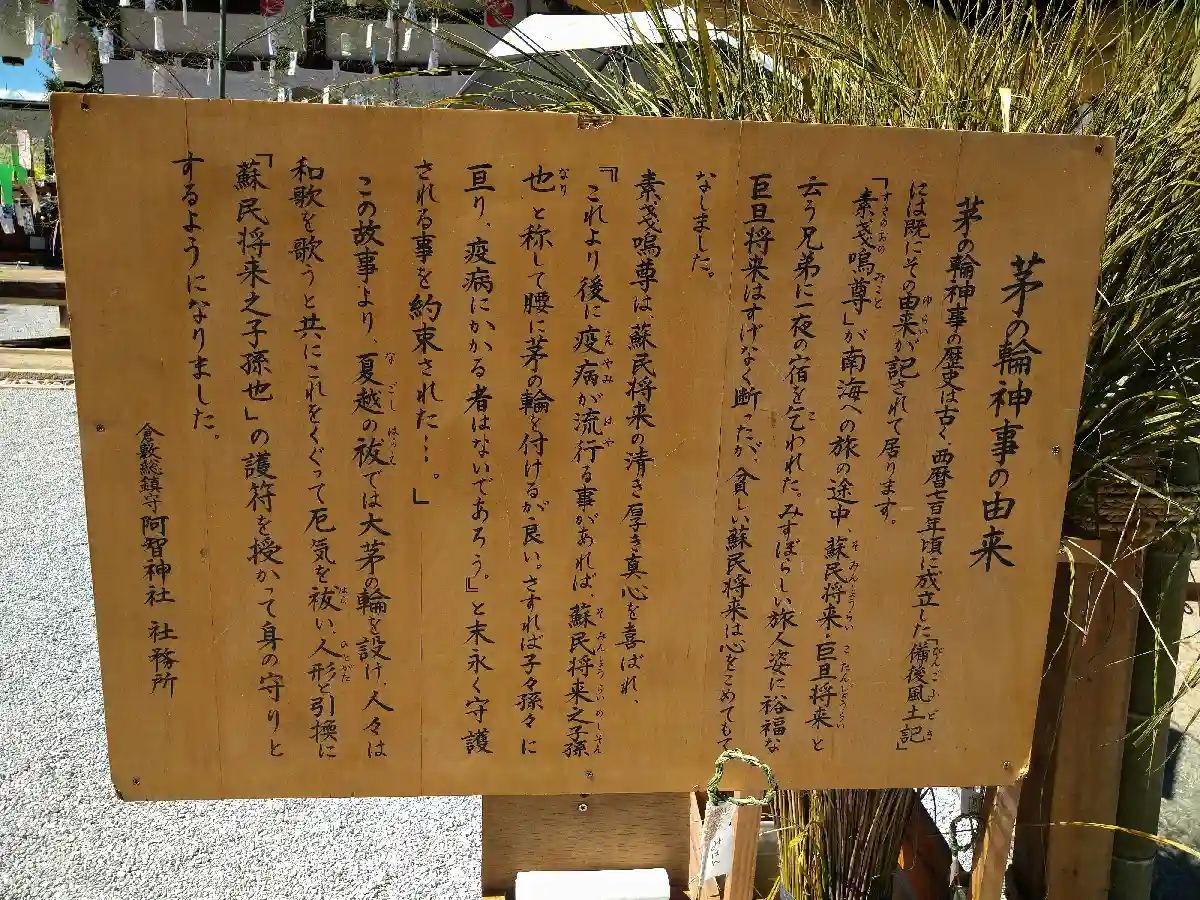 茅の輪神事の由来
茅の輪神事の歴史は古く、西暦七百年頃に成立した「備後風土記」
には既にその由来が記されて居ります。
「素戔嗚尊」が南海への旅の途中、蘇民将来・巨旦将来と
云う兄弟に一夜の宿を乞われた。みすぼらしい旅人姿に裕福な
巨旦将来はすげなく断ったが、貧しい蘇民将来は心をこめてもて
なしました。
素戔嗚尊は、蘇民将来の清き厚き真心を喜ばれ、
『これより後に疫病が流行る事があれば、蘇民将来之子孫
也 と称して腰に茅の輪を付けるが良い。さすれば子々孫々に
亘り、疫病にかかる者はないであろう。』と末永く守護
される事を約束された…。」
この故事より、夏越の祓では大茅の輪を設け、人々は
和歌を歌うと共にこれをくぐって厄気を祓い、人形と引換に
「蘇民将来之子孫也」の護符を授かって身の守りと
するようになりました。
倉敷総鎮守 阿智神社 社務所